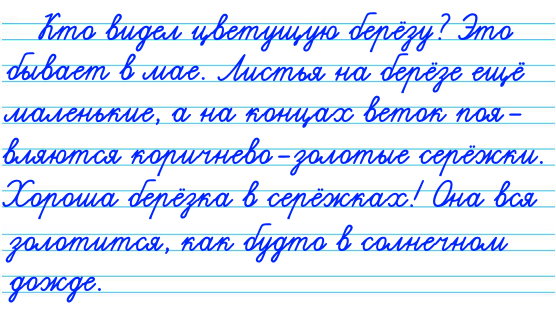 Кто видел цветущую берёзу? Это
бывает в мае. Листья на берёзе ещё
маленькие, а на концах веток поя-
вляются коричнево-золотые серёжки.
Хороша берёзка в серёжках! Она вся
золотится, как будто в солнечном
дожде.